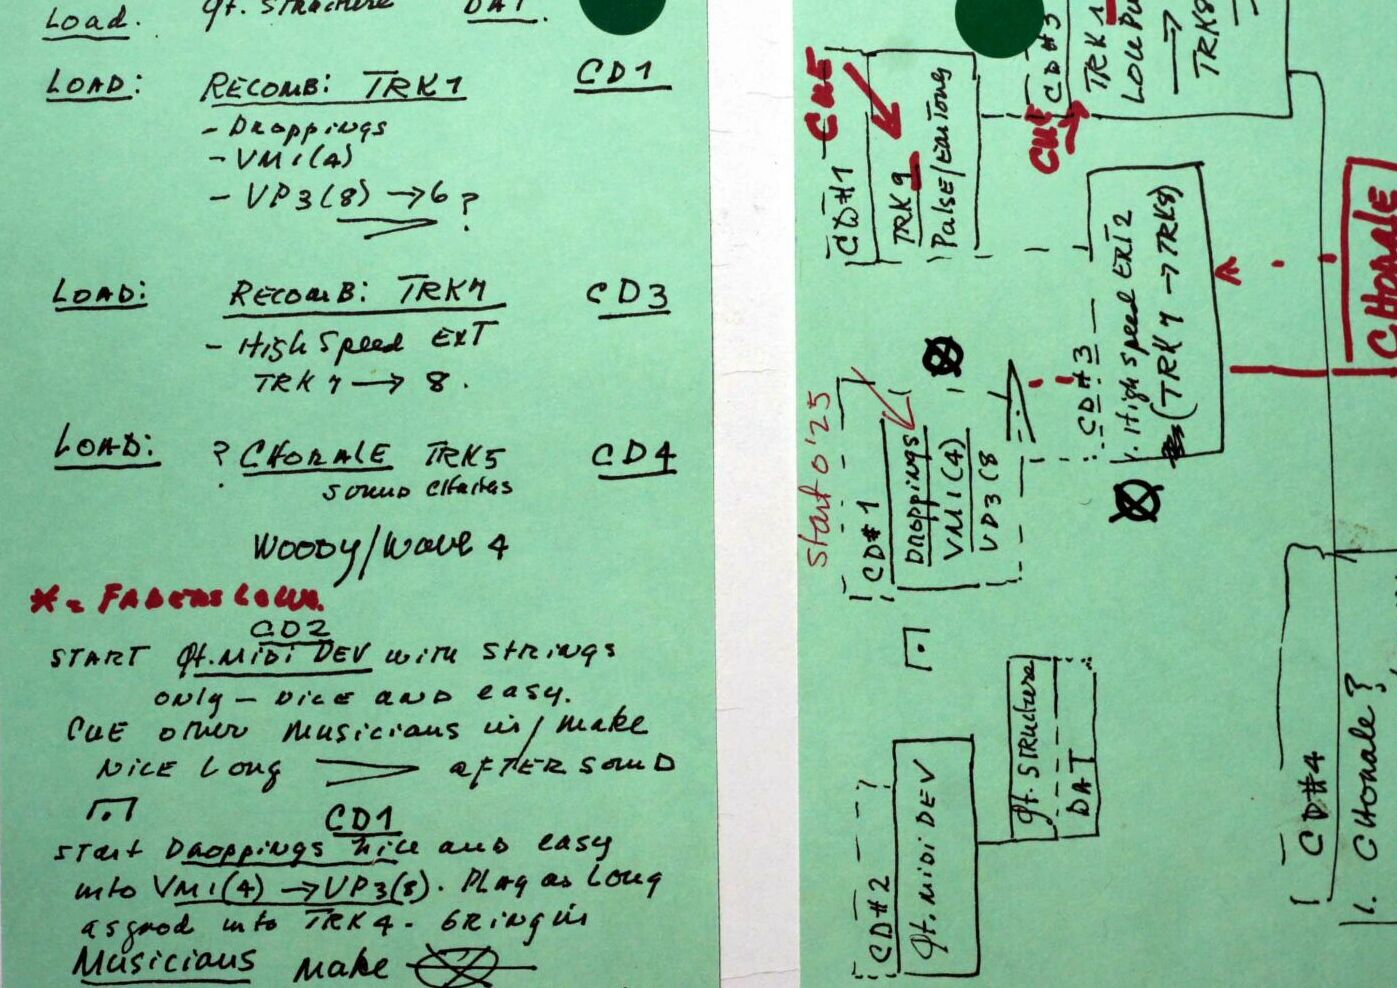 Load. Qt. Structure DAT.
LOAD: RECOMB: TRK7 CD1
- Droppings
- VM1(4)
- VP3(8) → 6 ?
LOAD: RECOMB: TRK7 CD3
- High Speed EXT
TRK 7 → 8.
LOAD: ? CHORALE TRK5 CD4
Woody/Wave 4
CD2
START Qt. MIDI DEV with Strings
only - NICE AND easy.
CUE other Musicians in/make
NICE LONG AFTER SOUND
CD1
Start Droppings nice and easy
into VM1(4) → VP3(8). Play as Long
as good into TRK 4. bring in
Musicians make
CD#1 CUE
TRK 9
CUE
CD#3
TRK
TRK8
CD#3
1. High Speed EXT 2
(TRK 7 → TRK8)
CHORALE
Start 0'25
CD#1
Droppings
VM1(4)
VD3(8
CD#2
Qt. MIDI DEV
Qt. Structure
DAT
CD#4
1. CHORALE?